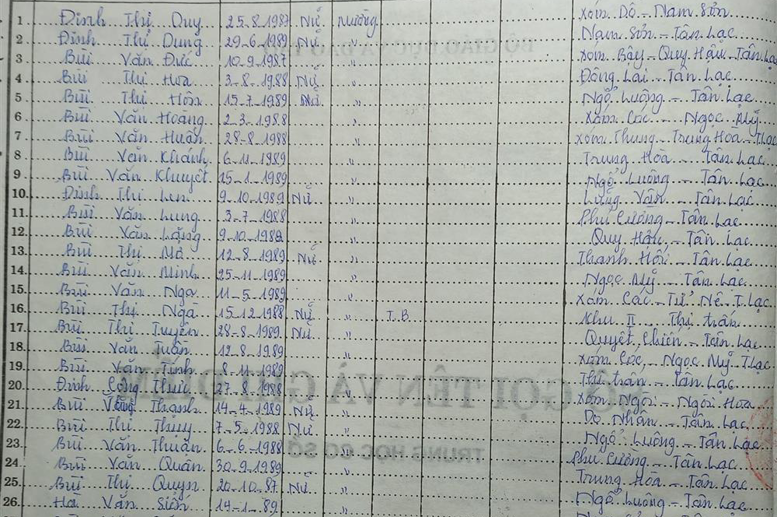 1. Đinh Thị Quy 25.8.1987 Nữ Mường Xóm Dô - Nam Sơn
2. Đinh Thị Dung 29-6-1989 Nữ " Nam Sơn - Tân Lạc
3. Bùi Văn Đức 10-9-1987 " Xóm Bậy - Quy Hậu - Tân Lạc
4. Bùi Thị Hoa 3-8-1988 Nữ " Đông Lai - Tân Lạc
5. Bùi Thị Hôn 15.7.1989 Nữ " Ngổ Luông - Tân Lạc
6. Bùi Văn Hoàng 2-3-1988 " Xóm Cóc - Ngọc Mỹ
7. Bùi Văn Huân 28-8-1988 " Xóm Thung - Trung Hoà - T.Lạc
8. Bùi Văn Khánh 6-11-1989 " Trung Hoà - Tân Lạc
9. Bùi Văn Khuyết 25-1-1989 " Ngổ Luông - Tân Lạc
10. Đinh Thị Len 9-10-1989 Nữ " Lũng Vân - Tân Lạc
11. Bùi Văn Lung 3-7-1988 " Phú Cường - Tân Lạc
12. Bùi Văn Lặng 9-10- " Quy Hậu - Tân Lạc
13. Bùi Thị Mỏ 12-8-1989 Nữ " Thanh Hối - Tân Lạc
14. Bùi Văn Minh 25-11-1989 " Ngọc Mỹ - Tân Lạc
15. Bùi Văn Nga 11-5-1989 " Xóm Cóc - Tử Nê - T.Lạc
16. Bùi Thị Ngà 15-12-1988 Nữ " T.B. Khu II - Thị trấn
17. Bùi Thị Tuyển 28-8-1989 Nữ " Quyết Chiến - Tân Lạc
18. Bùi Văn Tuấn 12-8-1989 " Xóm Cóc, Ngọc Mỹ T.Lạc
19. Bùi Văn Tình 8-11-1989 " Thị trấn - Tân Lạc
20. Đinh Công Thức 27-8-1988 " Xóm Ngòi - Ngòi Hoa
21. Bùi Thanh 14-4-1989 Nữ " Do Nhân - Tân Lạc
22. Bùi Thị Thuy 7-5-1988 Nữ " Ngổ Luông - Tân Lạc
23. Bùi Văn Thuân 6-6-1988 " Phú Cường - Tân Lạc
24. Bùi Văn Quân 30-9-1989 " Trung Hoà - Tân Lạc
25. Bùi Thị Quyn 20-10-87 Nữ " Ngổ Luông - Tân Lạc
26. Hà Văn Siên 14-1-89 "
GỌI TÊN VÀ GHI ĐIỂM
TRUNG HỌC CƠ SỞ